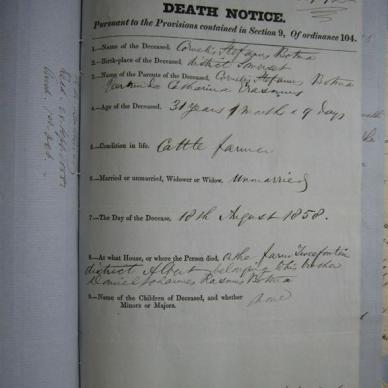 DEATH NOTICE.
Pursuant to the Provisions contained in Section 9, Of ordinance 104.
1.—Name of the Deceased. Cornelis Stefanus Botma
2.—Birth-place of the Deceased. district Somerset
3.—Name of the Parents of the Deceased. Cornelis Stefanus Botma
Catharina Erasmus
4.—Age of the Deceased. 31 years 9 months & 9 days
5.—Condition in life. Cattle farmer
6.—Married or unmarried, Widower or Widow. Unmarried
7.—The Day of the Decease. 18th August 1858.
8.—At what House, or where the Person died. On the farm
district Albert belonging to his brother
Daniel Johannes Rasmus Botma
9.—Name of the Children of Deceased, and whether
Minors or Majors. None